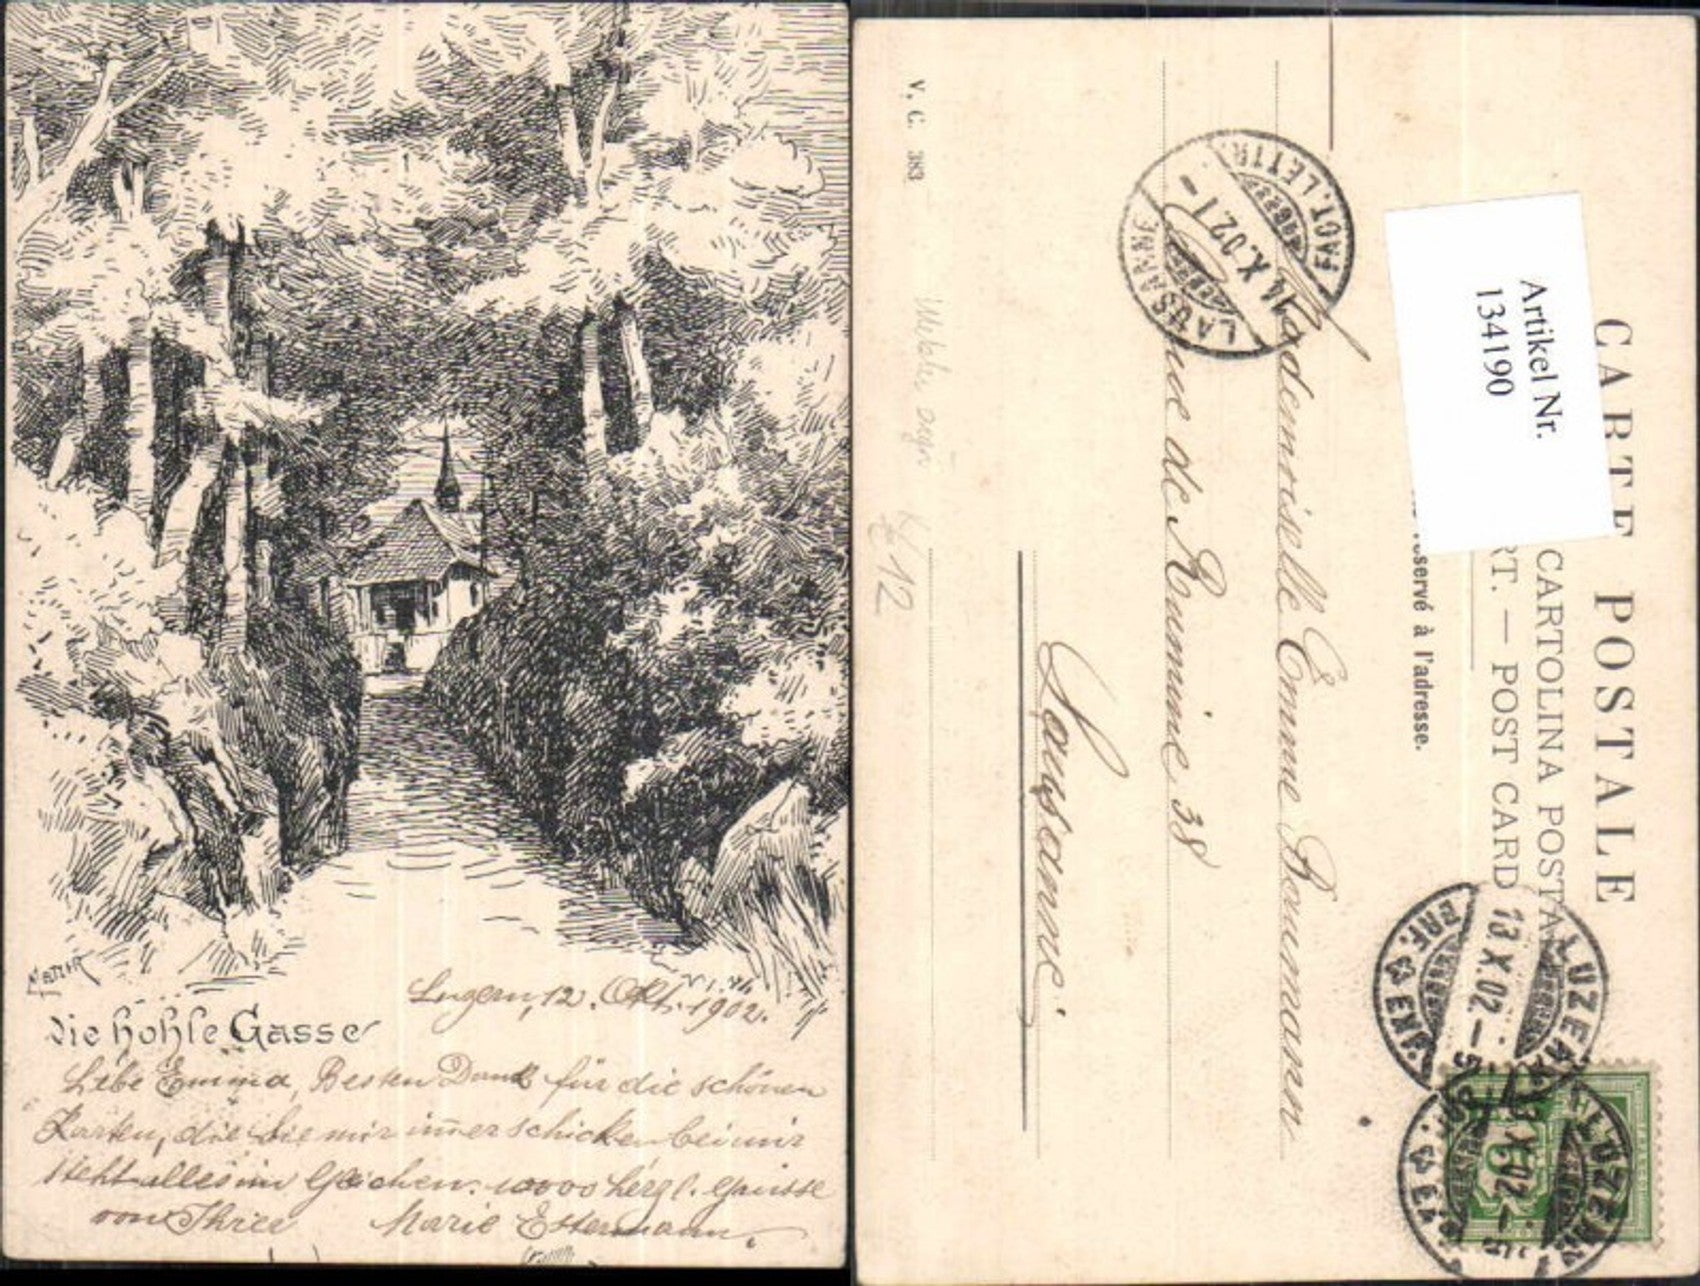 Die hohle Gasse
Luzern, 12. Okt. 1902.
Libe Emma, Besten Dank für die schönen
Karten, die Sie mir im̄er schicken bei mir
steht alles im Gleichen. 10000 herzl. Grüsse
von Ihrer Marie Estermann.
CARTE POSTALE
CARTOLINA POSTA
RT. — POST CARD
servé à l'adresse.
Artikel Nr.
134190
LUZERN
BRF. EXP.
13.X.02.–5
LUZERN
X.02.–
LAUSANNE
14.X.02.1–
FACT. LETTR.
Mademoiselle Emma Baumann
rue de Rumine 38
Lausanne
V. C. 383
12